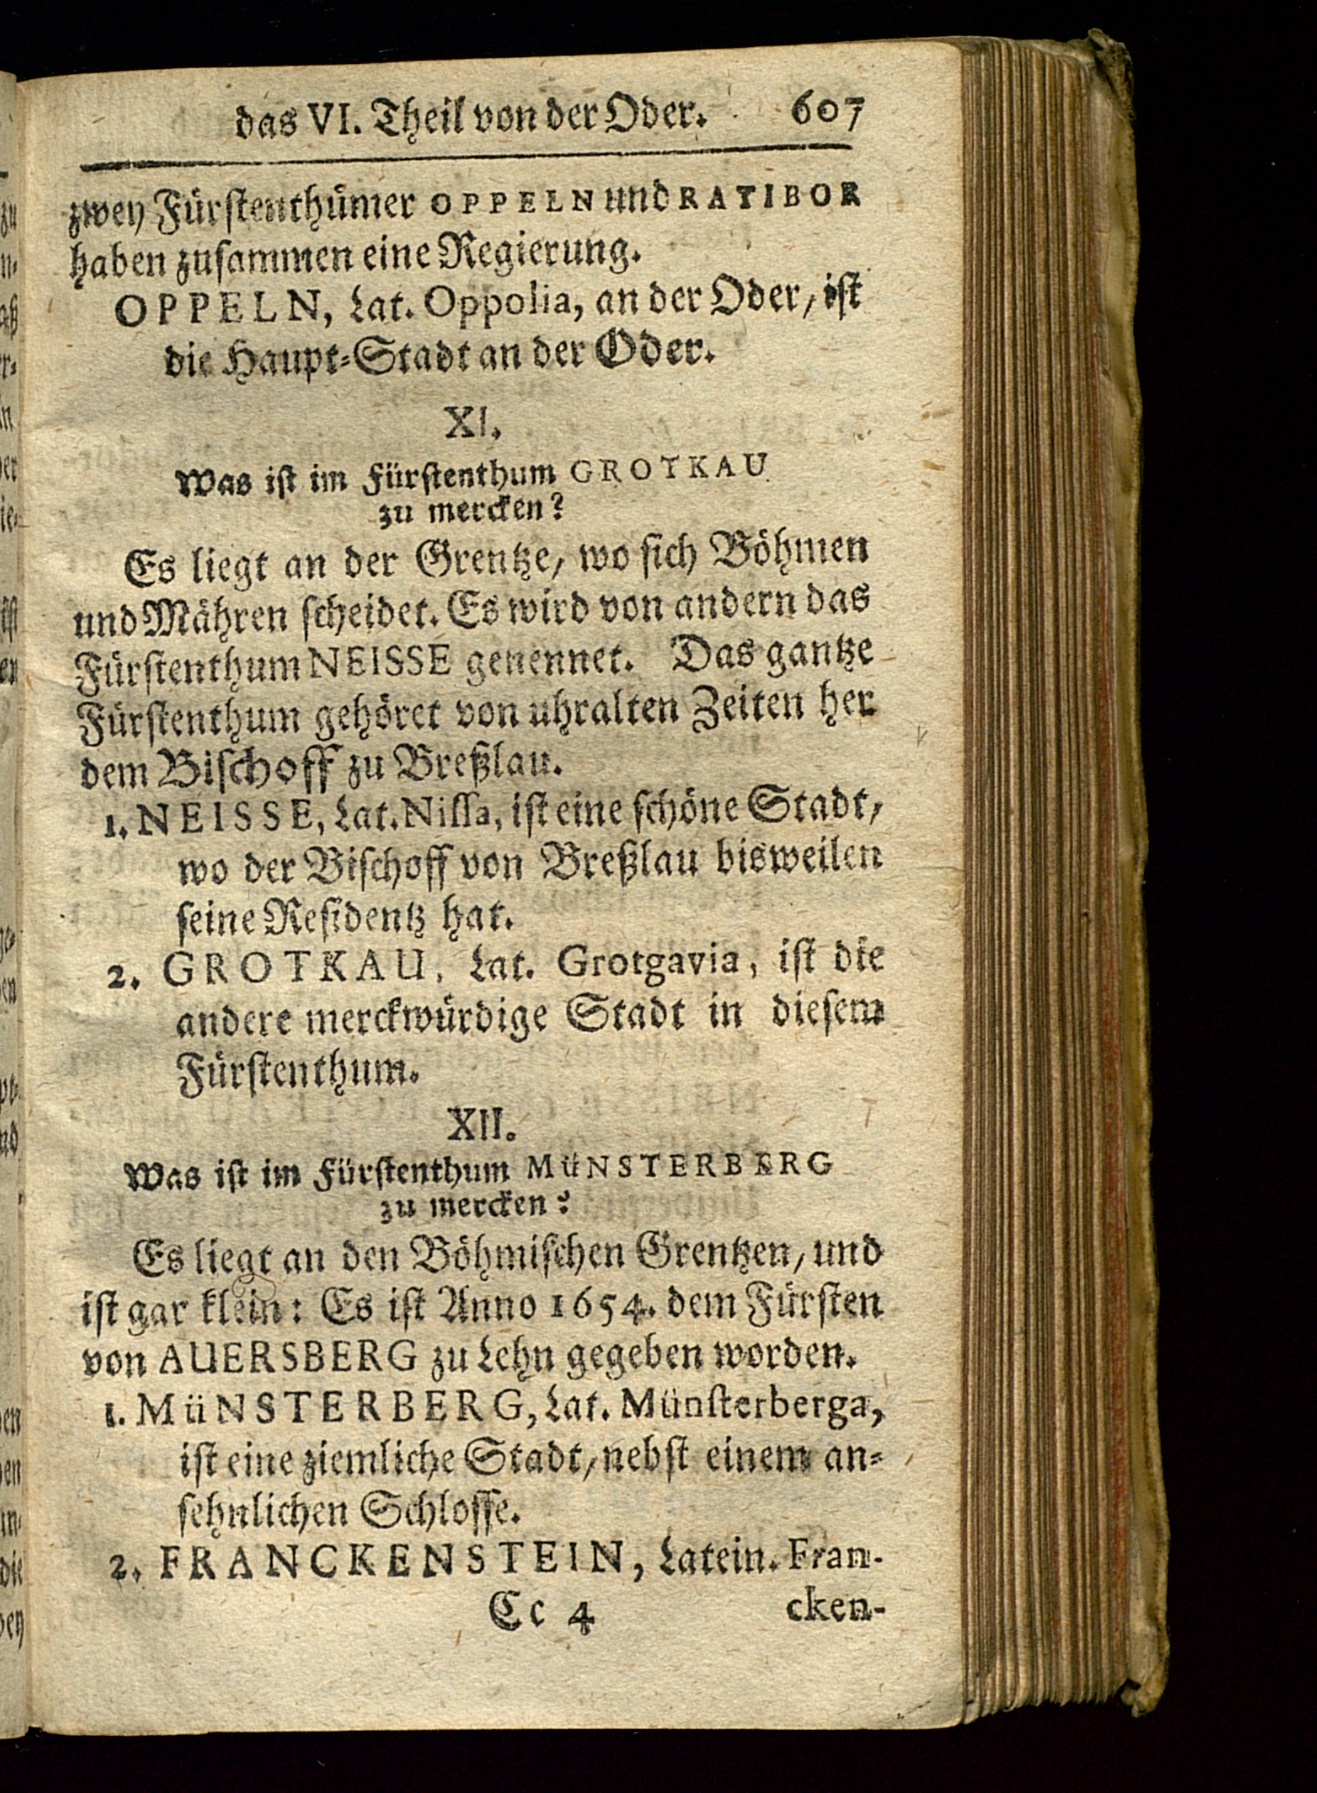 das VI. Theil von der Oder. 607
zwey Fürstenthümer OPPELN und RATIBOR
haben zusammen eine Regierung.
OPPELN, Lat. Oppolia, an der Oder, ist
die Haupt-Stadt an der Oder.
XI.
Was ist im Fürstenthum GROTKAU
zu mercken?
Es liegt an der Grentze, wo sich Böhmen
und Mähren scheidet. Es wird von andern das
Fürstenthum NEISSE genennet. Das gantze
Fürstenthum gehöret von uhralten Zeiten her
dem Bischoff zu Breßlau.
1. NEISSE, Lat. Nissa, ist eine schöne Stadt,
wo der Bischoff von Breßlau bisweilen
seine Residentz hat.
2. GROTKAU, Lat. Grotgavia, ist die
andere merckwürdige Stadt in diesem
Fürstenthum.
XII.
Was ist im Fürstenthum MüNSTERBERG
zu mercken?
Es liegt an den Böhmischen Grentzen, und
ist gar klein: Es ist Anno 1654. dem Fürsten
von AUERSBERG zu Lehn gegeben worden.
1. MüNSTERBERG, Lat. Münsterberga,
ist eine ziemliche Stadt, nebst einem an-
sehnlichen Schlosse.
2. FRANCKENSTEIN, Latein. Fran-
Cc 4 cken-